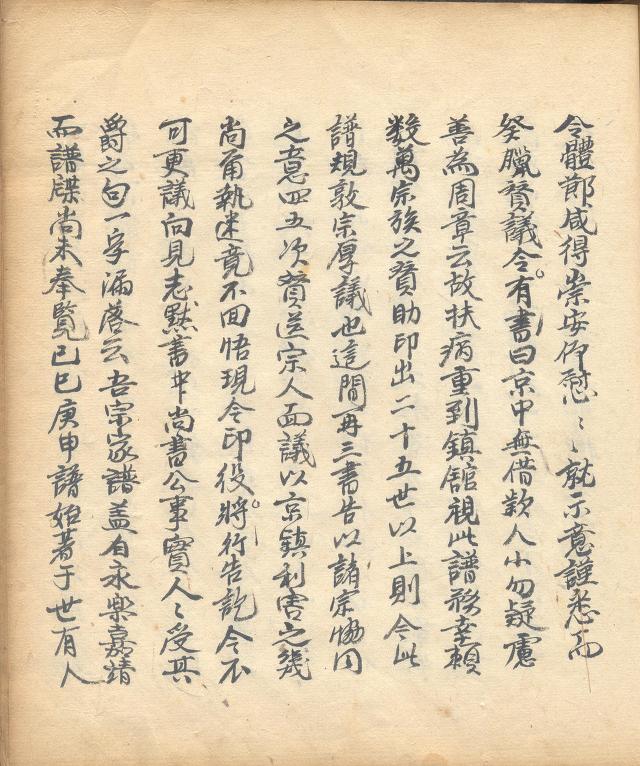 令體節咸得崇安仰慰〻就示意謹悉而
癸臘賢議令有書曰京中無借款人小勿疑慮
善為周章云故扶病重到鎮館視此譜務幸賴
數萬宗族之贊助印出二十五世以上則今此
譜規敦宗厚議也這間再三書告以諸宗協同
之意四五次賫送宗人面議以京鎮利害之幾
尚甭執迷竟不回悟現今印役將行告訖今不
可更議向見志默書中尚書公事實人〻受其
爵之句一字漏落云吾宗家譜盖自永樂嘉靖
而譜牒尚未奉覽己巳庚申譜始著于世有人